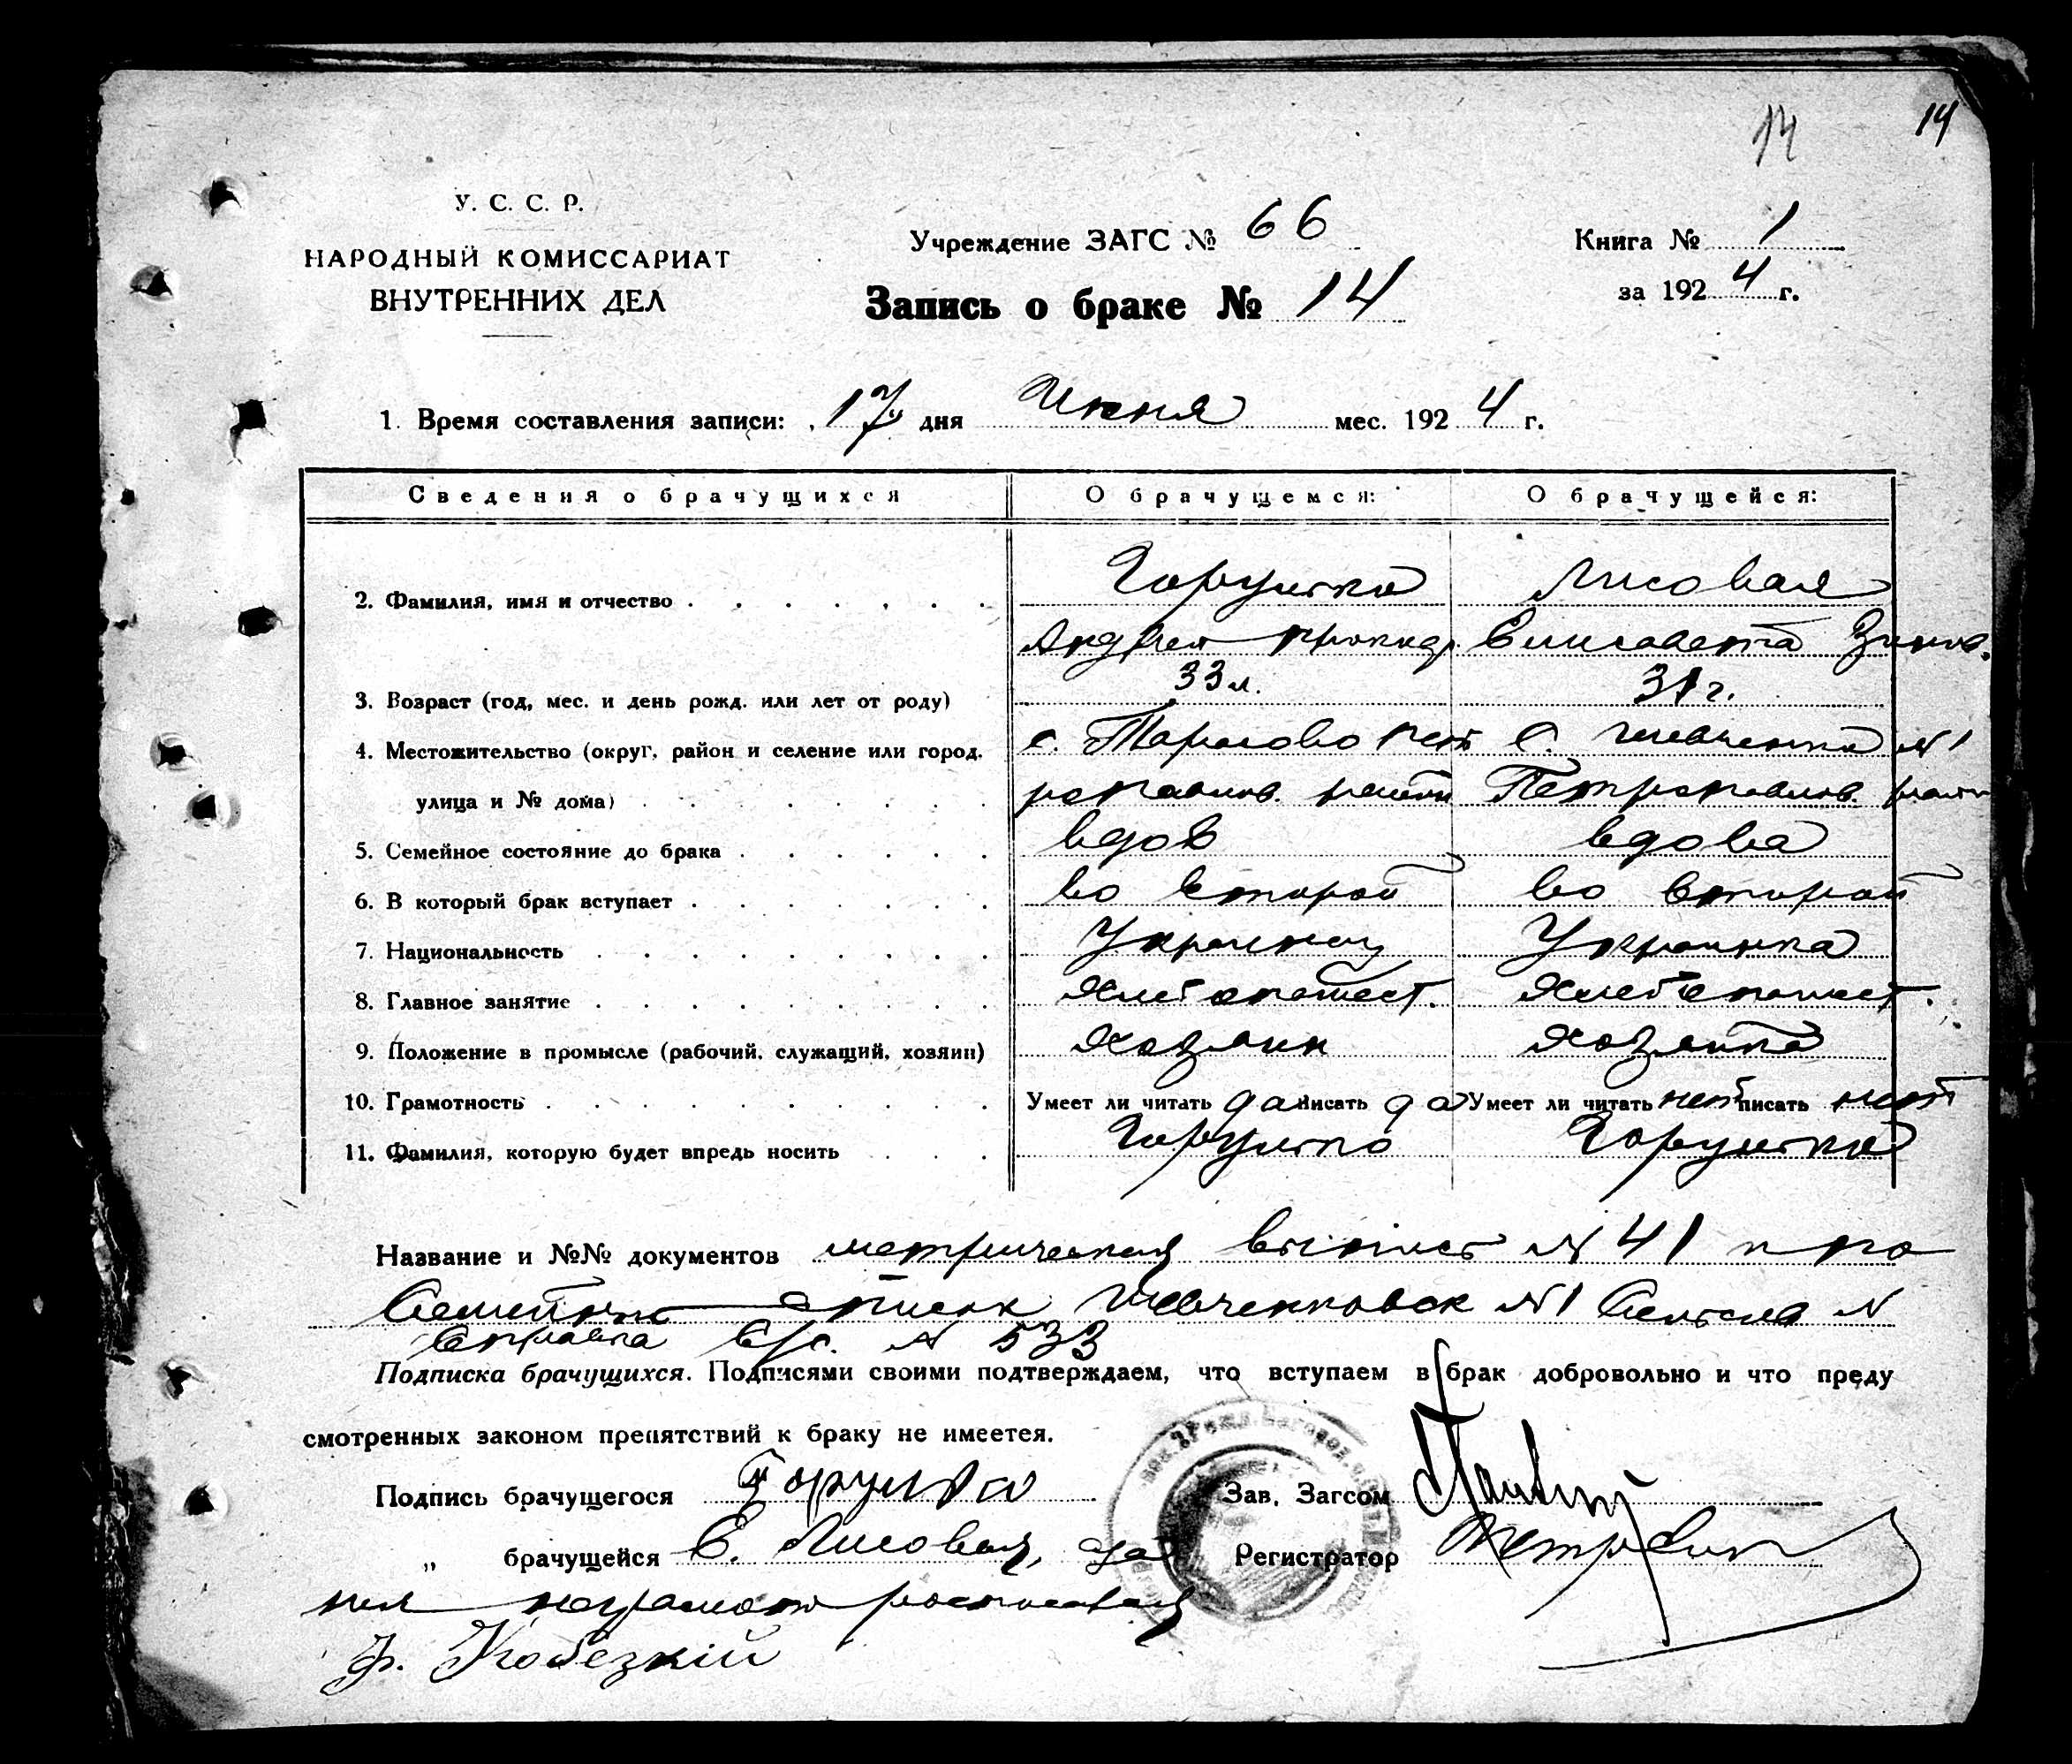 14
14
У. С. С. Р.
НАРОДНЫЙ КОМИССАРИАТ
ВНУТРЕННИХ ДЕЛ
Учреждение ЗАГС № 66
Запись о браке № 14
Книга № 1
за 1924 г.
1. Время составления записи: 17 дня Июня мес. 1924 г.
Сведения о брачущихся О брачущемся: О брачущейся:
2. Фамилия, имя и отчество Лисовая
Андрей Елисавета Зинов.
3. Возраст (год, мес. и день рожд. или лет от роду) 33 л. 31 г.
4. Местожительство (округ, район и селение или город, с. Тарасово Пет с. Шевченко №1
улица и № дома) ропавлов. район Петропавлов. район
5. Семейное состояние до брака вдов вдова
6. В который брак вступает во второй во второй
7. Национальность Украинец Украинка
8. Главное занятие Хлебопашест. Хлебопашест.
9. Положение в промысле (рабочий, служащий, хозяин) Хозяин Хозяйка
10. Грамотность Умеет ли читать да писать да Умеет ли читать нет писать нет
11. Фамилия, которую будет впредь носить
Название и №№ документов метрическая выпись № 41 и
Семейный список Шевченковск №1 Сельсов №
справка С/с. № 533
Подписка брачущихся. Подписями своими подтверждаем, что вступаем в брак добровольно и что преду
смотренных законом препятствий к браку не имеется.
Подпись брачущегося Зав. Загсом
„ брачущейся Е. Лисовая, за Регистратор
нея неграмотн росписался